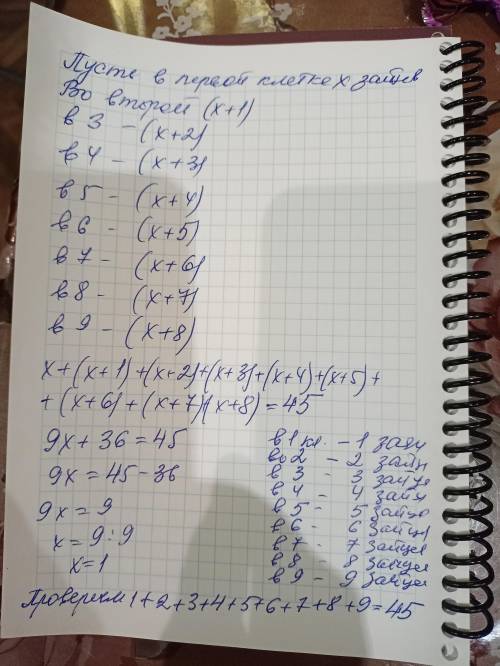 Пусть в первой клетке x зайцев
Во втором (x+1)
в 3 - (x+2)
в 4 - (x+3)
в 5 - (x+4)
в 6 - (x+5)
в 7 - (x+6)
в 8 - (x+7)
в 9 - (x+8)
x+(x+1)+(x+2)+(x+3)+(x+4)+(x+5)+
+(x+6)+(x+7)+(x+8)=45
9x+36=45
9x=45-36
9x=9
x=9:9
x=1
в 1 кл. - 1 заяц
во 2 - 2 зайц
в 3 - 3 зайца
в 4 - 4 зайц
в 5 - 5 зайцо
в 6 - 6 зайцев
в 7 - 7 зайцев
в 8 8 зайцев
в 9 - 9 зайцев
Проверяем 1+2+3+4+5+6+7+8+9=45